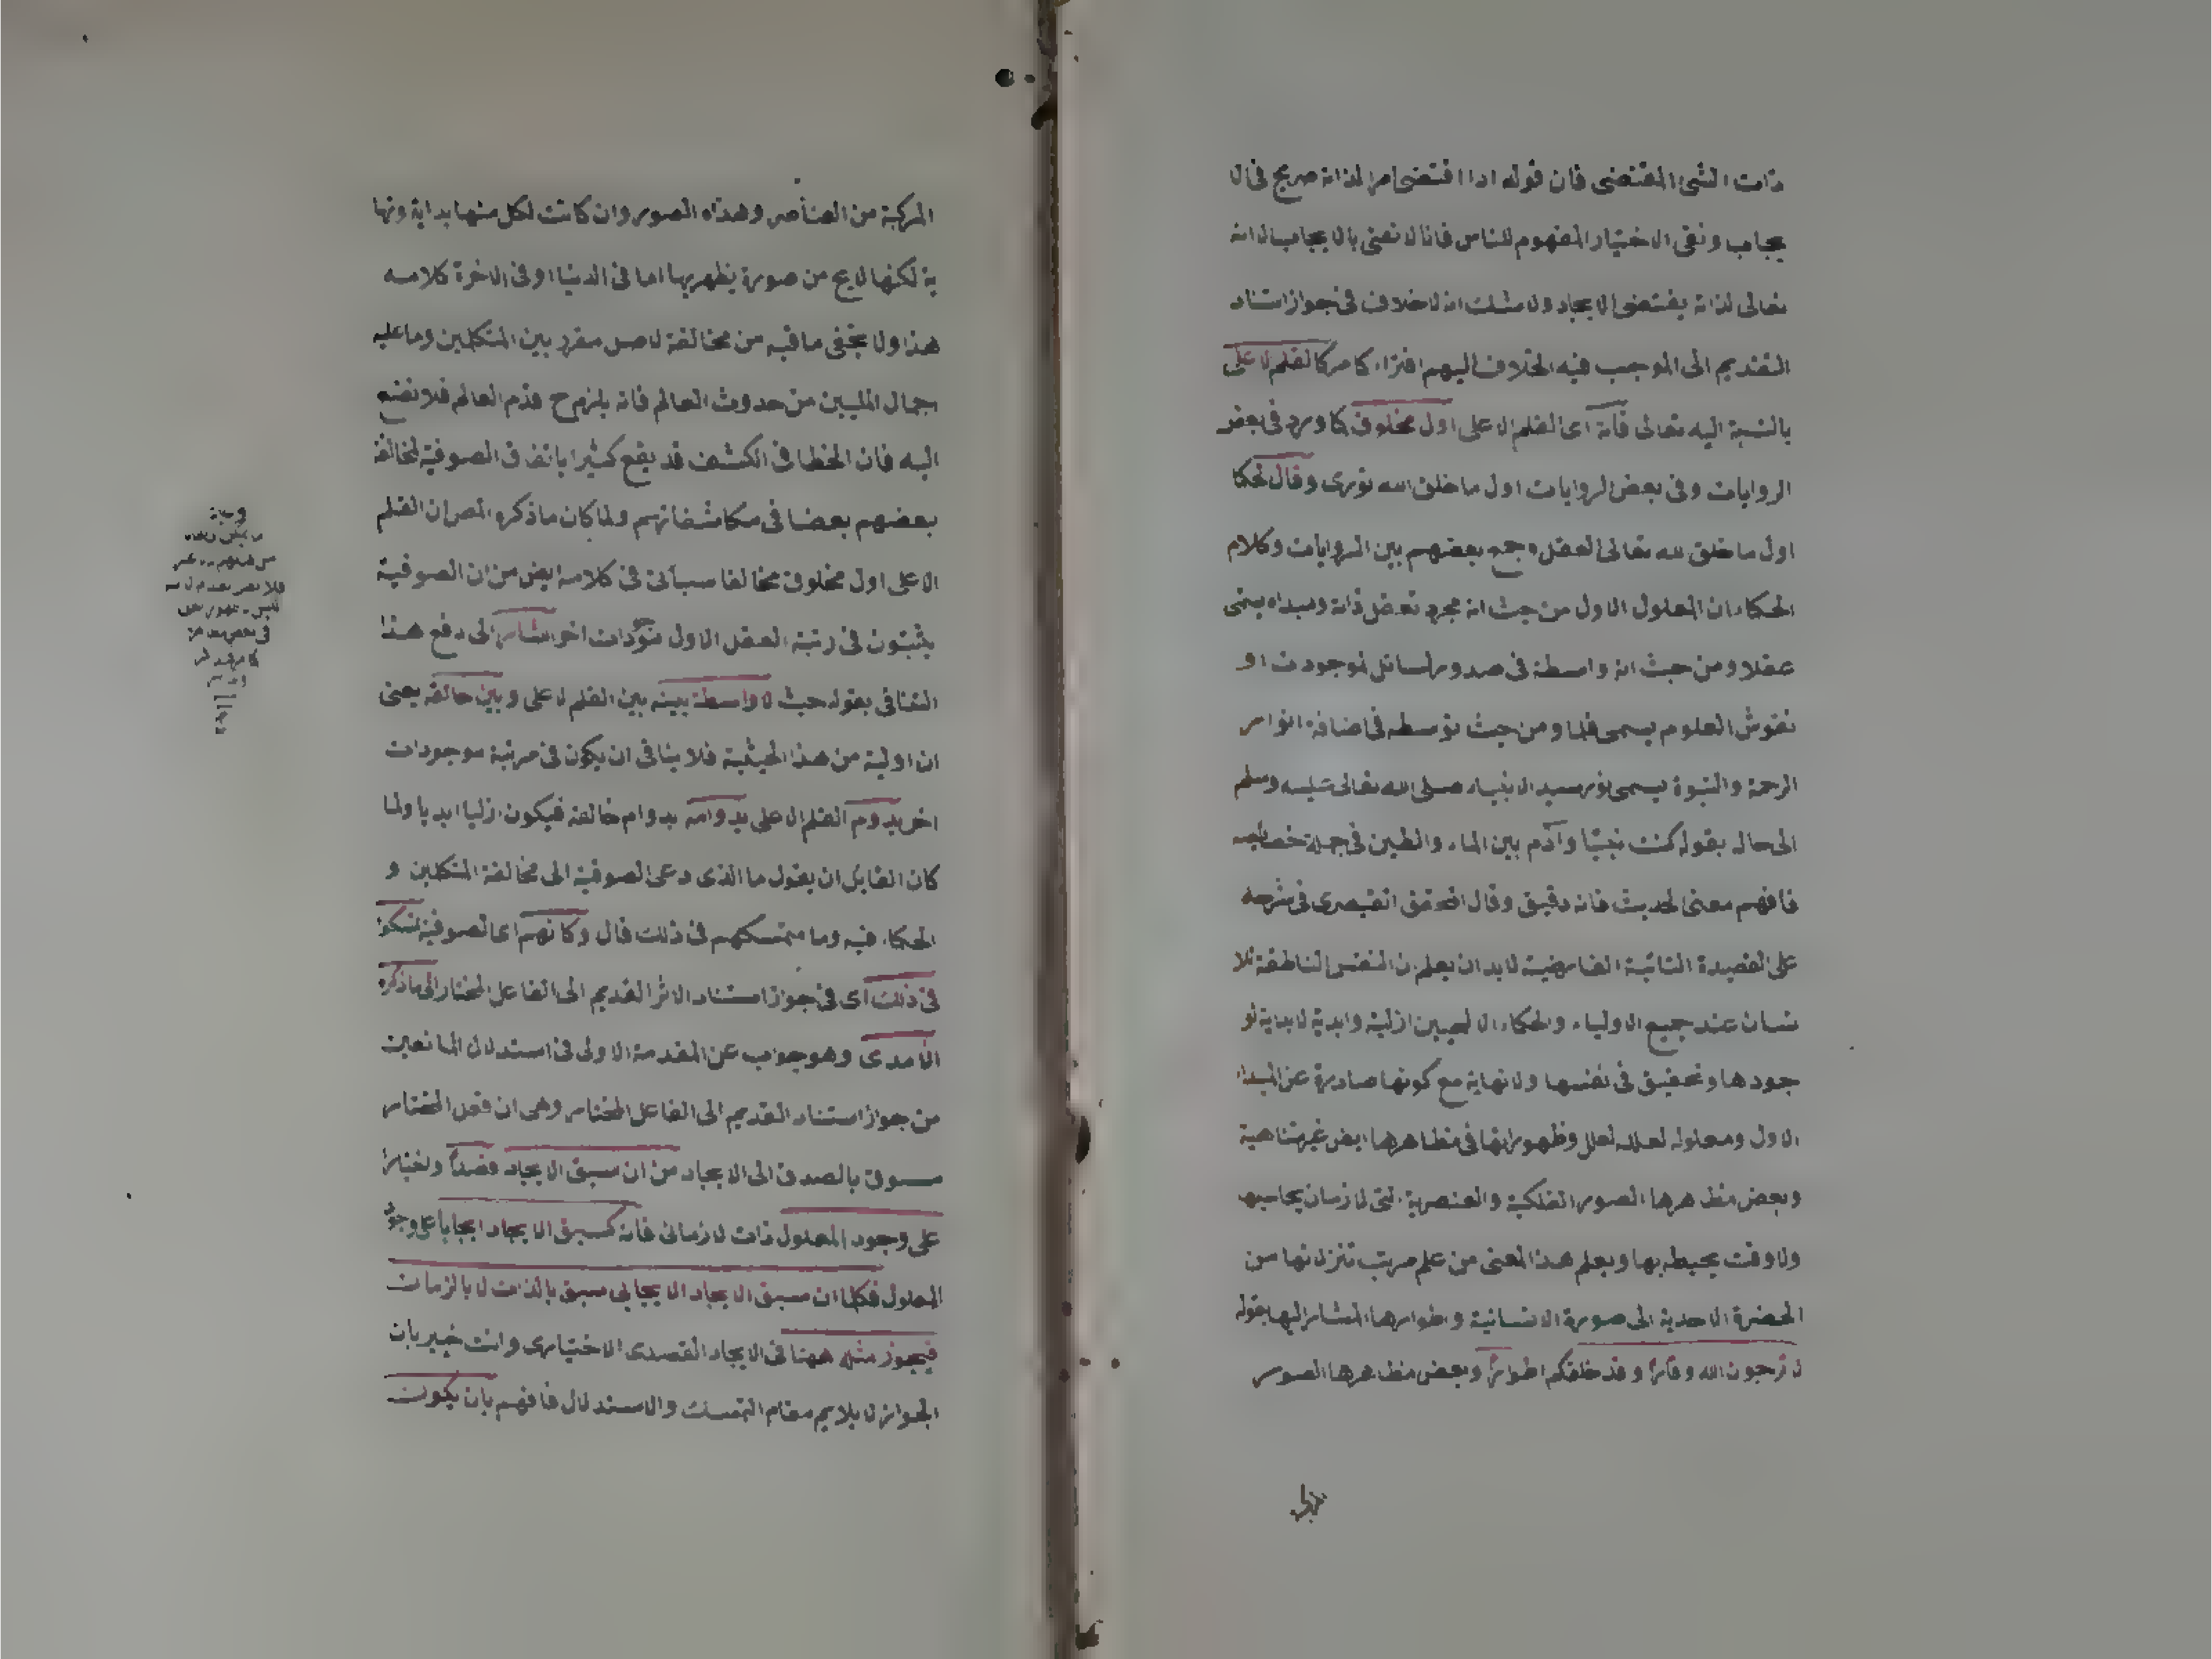 ذات الشئ المقتضى فان قوله اذا اقتضى امرا لذاته صريح فى الا
يجاب ونفى الاختيار المفهوم للناس فانا لا نعنى بالايجاب الا انه
تعالى لذاته يقتضى الايجاد ولا شك انه لا خلاف فى جواز استناد
القديم الى الموجب فيه الخلاف اليهم افتراء كما مر كالقلم الاعلى
بالنسبة اليه تعالى فانه اى القلم الاعلى اول مخلوق كما ورد فى بعض
الروايات وفى بعض الروايات اول ما خلق الله نورى وقال الحكما
اول ما خلق الله تعالى العقل وجمع بعضهم بين الروايات وكلام
الحكماء ان المعلول الاول من حيث انه مجرد تعقل ذاته ومبداه يسمى
عقلا ومن حيث انه واسطة فى صدور سائر الموجودات او
نقوش العلوم يسمى قلما ومن حيث توسطه فى اضافة انوار
الرحمة والنبوة يسمى نور سيد الانبياء صلى الله تعالى عليه وسلم
الى حاله بقوله كنت نبيًا وآدم بين الماء والطين فى جملة خصايصه
فافهم معنى الحديث فانه دقيق وقال المحقق القيصرى فى شرحه
على القصيدة التائية الفارضية لا بد ان يعلم ان النفس الناطقة الا
نسان عند جميع الاولياء والحكماء الالهيين ازلية وابدية لا بداية لو
جودها وتحقيق فى نفسها ولا نهاية مع كونها صادرة عن المبداء
الاول ومعلوله لعلة العلل وظهوراتها فى مظاهرها ايض غير متناهية
وبعض مظاهرها الصور الفلكية والعنصرية التى لا زمان يحاسبها
ولا وقت يحيط بها ويعلم هذا المعنى من علم مرتب تنزلاتها من
الحضرة الاحدية الى صورة الانسانية واطوارها المشار اليها بقوله
لا ترجون الله وقارا وقد خلقكم اطوارا وبعض مظاهرها الصور
المركبة من العناصر وهذه الصور وان كانت لكل منها بداية ونها
ية لكنها لا يح من صورة يظهر بها اما فى الدنيا او فى الاخرة كلامه
هذا ولا يخفى ما فيه من مخالفة لاصل مقرر بين المتكلمين وما عليه
اجمال المليين من حدوث العالم فانه يلزم ح قدم العالم فلا تصغ
اليه فان الخطا فى الكشف قد يقع كثيرا باتفاق الصوفية لمخالفة
بعضهم بعضا فى مكاشفاتهم ولما كان ما ذكره المص ان القلم
الاعلى اول مخلوق مخالفا سيأتى فى كلامه ايض من ان الصوفية
يثبتون فى رتبة العقل الاول موجودات اخر اشار الى دفع هذا
التنافى بقوله حيث لا واسطة بينه بين القلم الاعلى وبين خالقه يعنى
ان اولية من هذا الحيثية فلا ينافى ان يكون فى مرتبة موجودات
اخر يدوم القلم الاعلى بدوامه بدوام خالقه فيكون ازليا ابديا ولما
كان القايل ان يقول ما الذى دعى الصوفية الى مخالفة المتكلمين و
الحكماء فيه وما متمسكهم فى ذلك قال وكانهم اى الصوفية تمسكوا
فى ذلك اى فى جواز استناد الاثر القديم الى الفاعل المختار الى ما ذكره
الآمدى وهو جواب عن المقدمة الاولى فى استدلال المانعين
من جواز استناد القديم الى الفاعل المختار وهى ان فعل المختار
مسوق بالصدق الى الايجاد من ان سبق الايجاد قصدًا واختيارا
على وجود المعلول ذات لا زمانى فانه كسبق الايجاد ايجابا على وجود
المعلول فكما ان سبق الايجاد الايجابى سبق بالذات لا بالزمان
فيجوز مثله ههنا فى الايجاد القصدى الاختيارى وانت خبير بان
الجواز لا يلايم مقام التمسك والاستدلال فافهم بان يكون